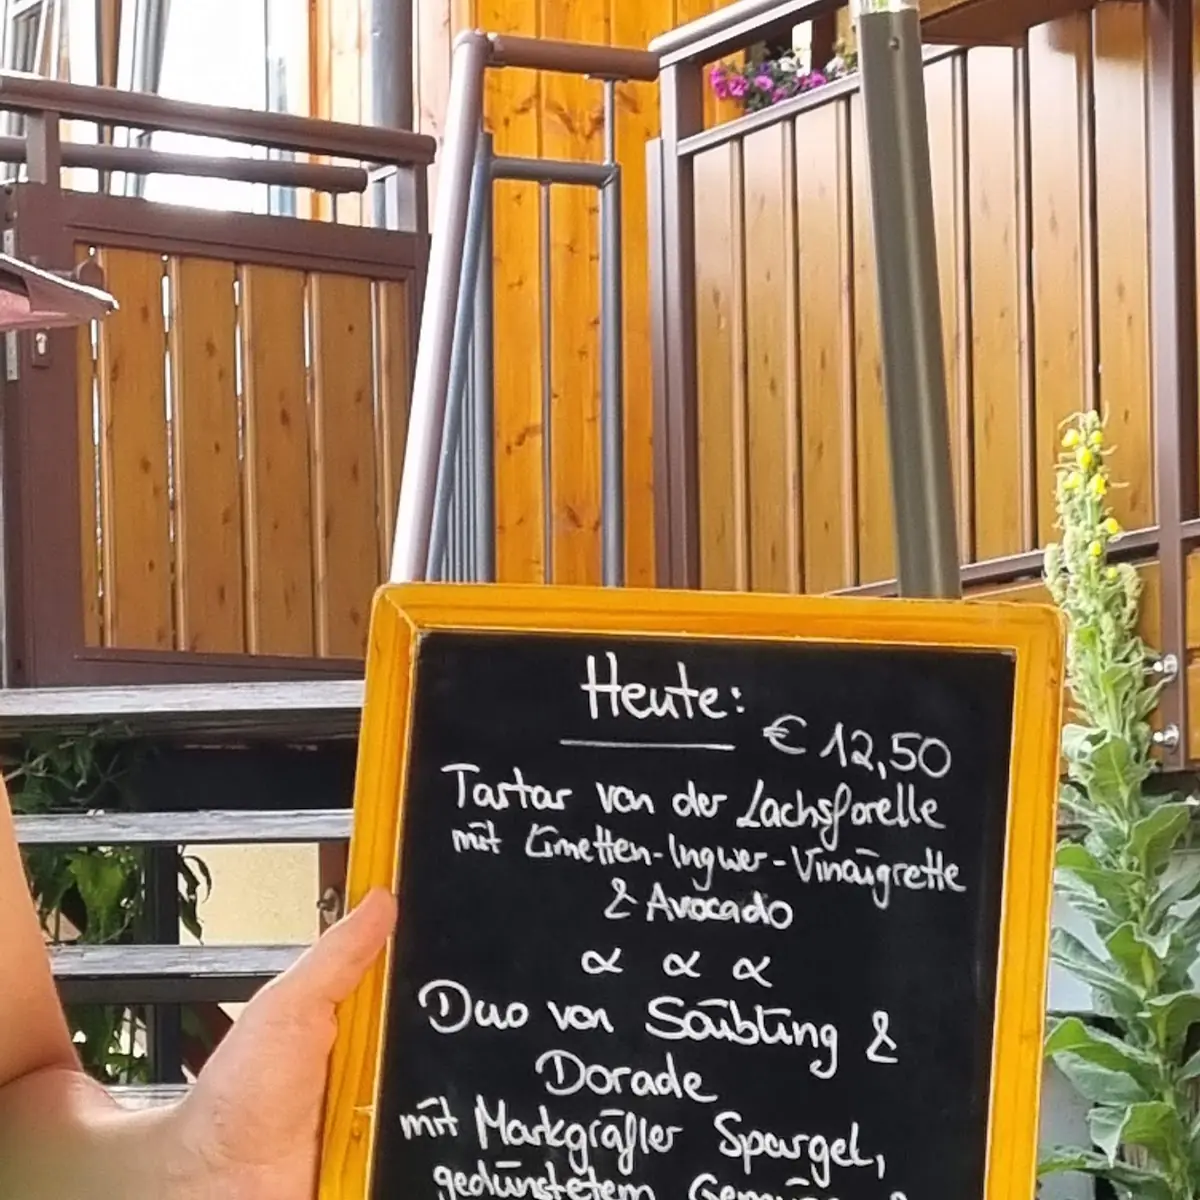 Heute:
€ 12,50
Tartar von der Lachsforelle
mit Limetten-Ingwer-Vinaigrette
& Avocado
α α α
Duo von Saibling &
Dorade
mit Markgräfler Spargel,
gedünstetem